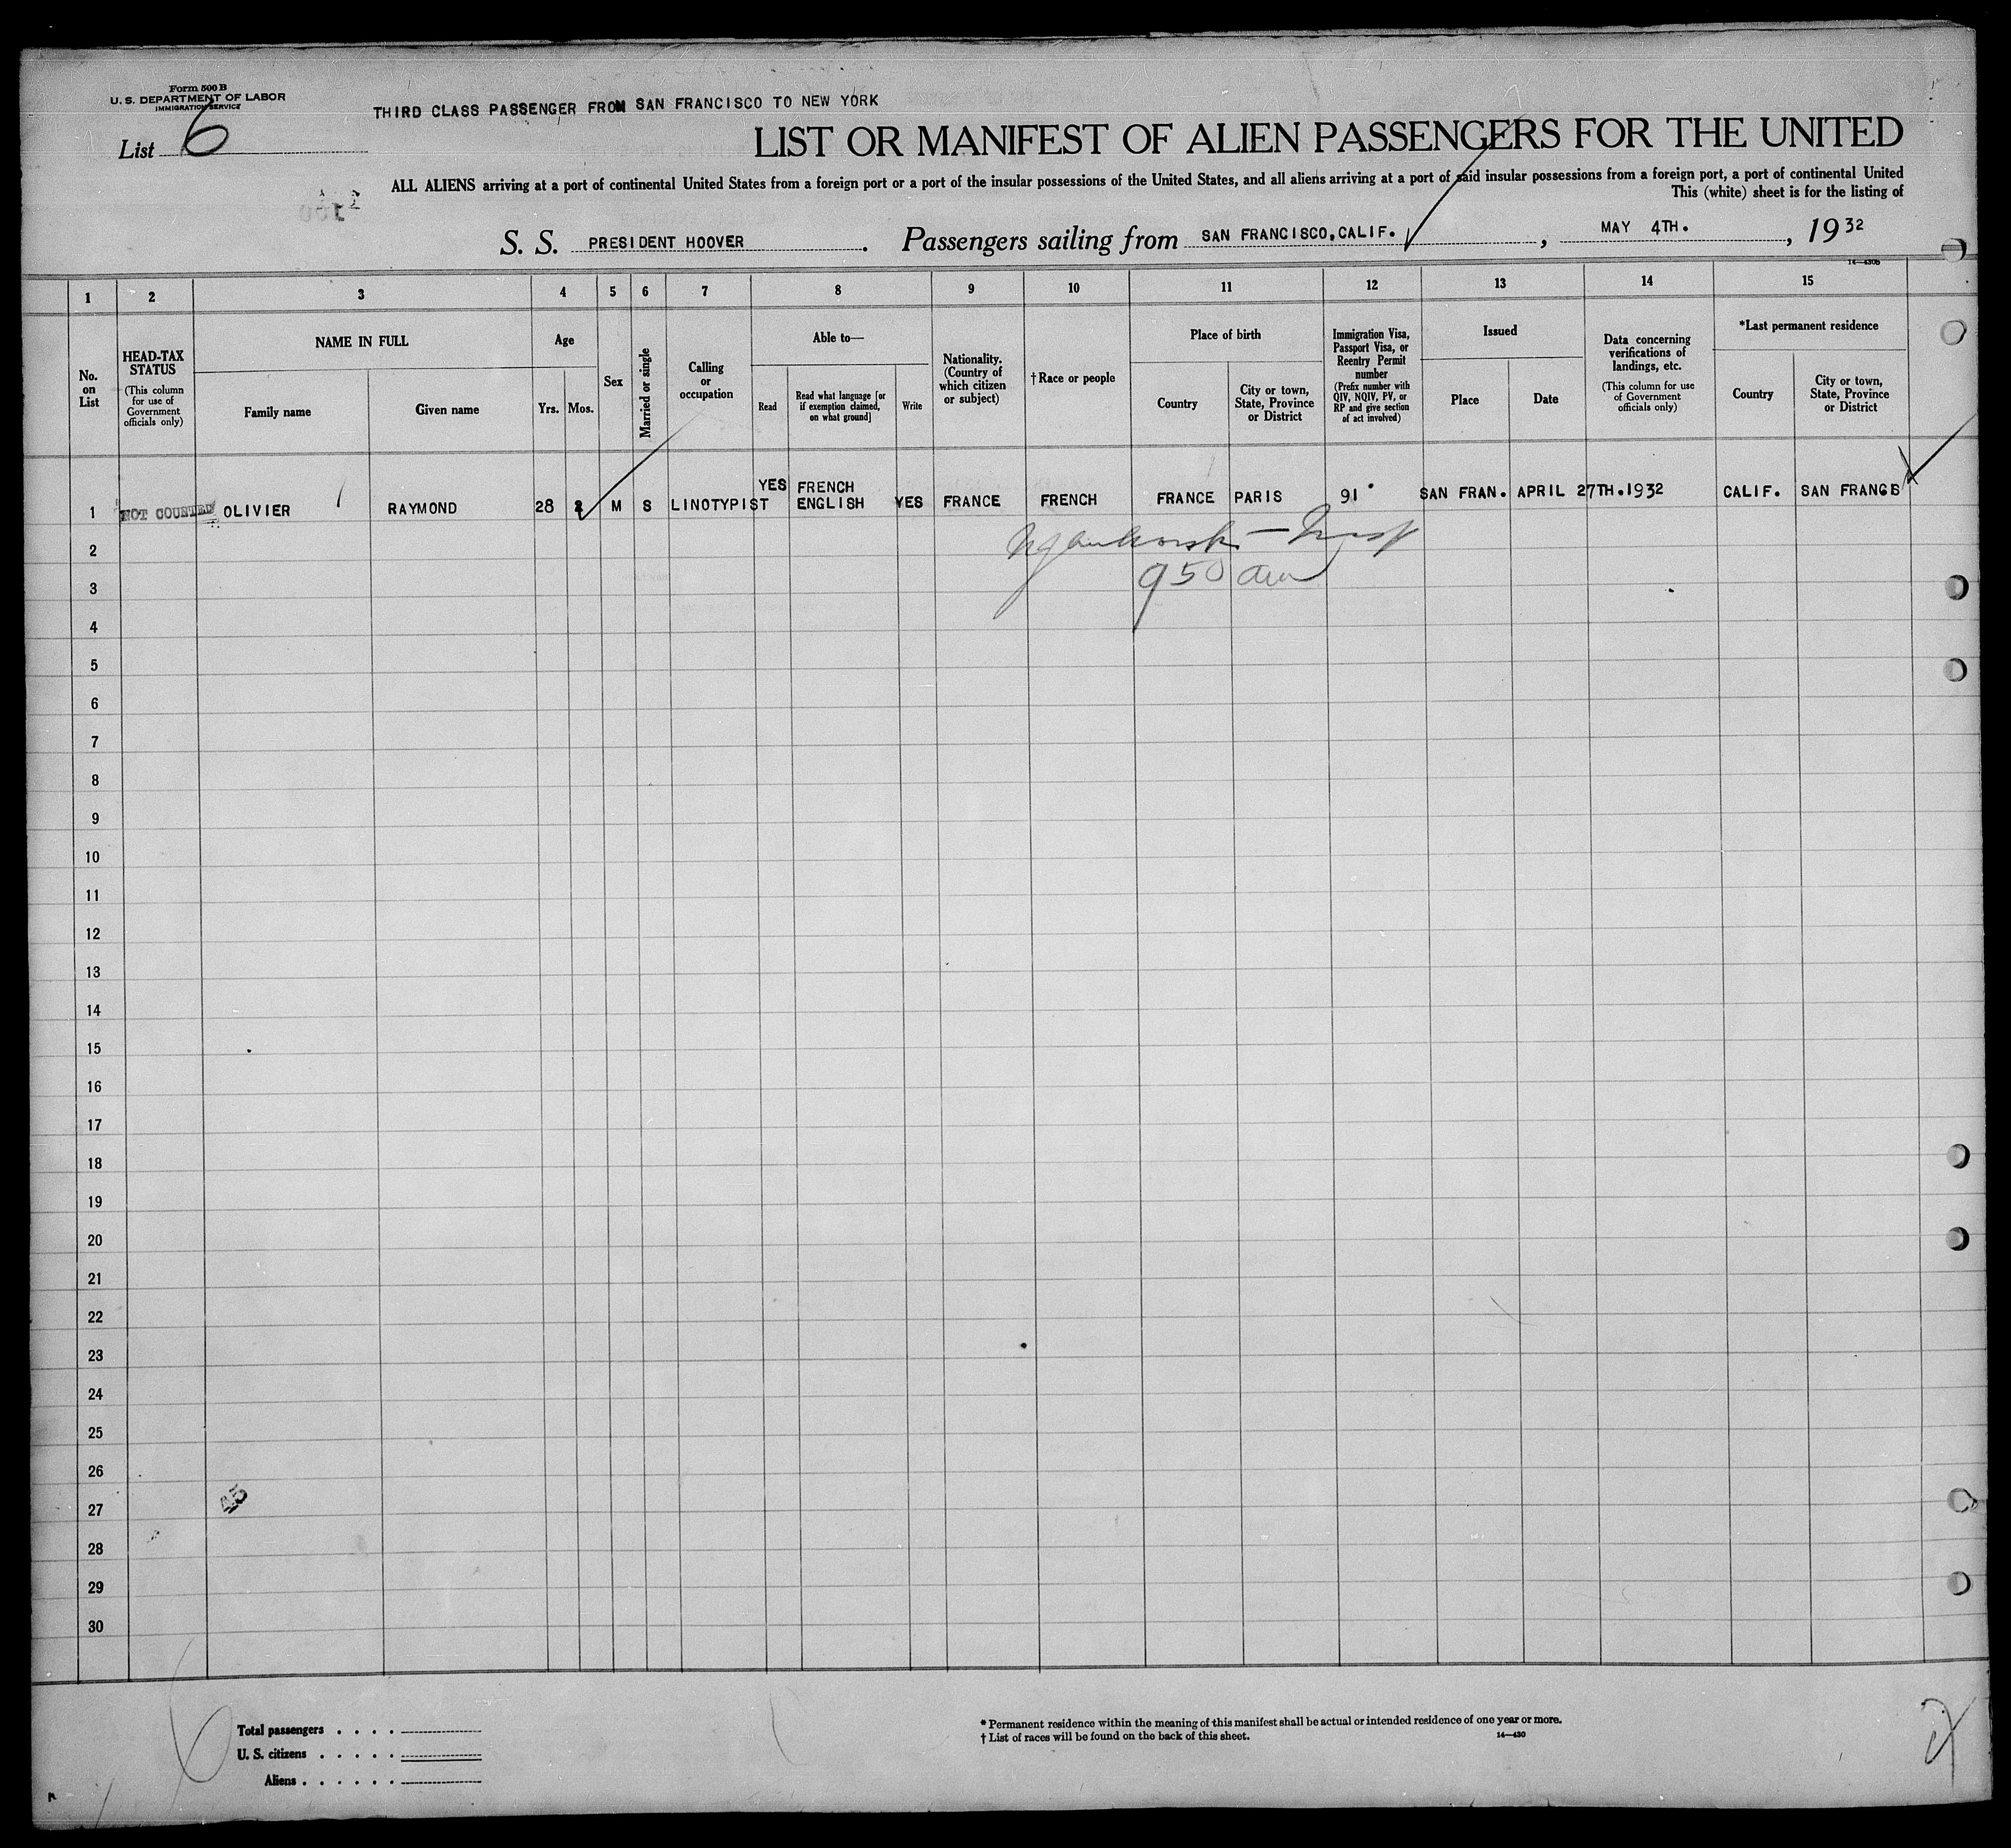 Form 500 B
U. S. DEPARTMENT OF LABOR
IMMIGRATION SERVICE
List 6
THIRD CLASS PASSENGER FROM SAN FRANCISCO TO NEW YORK
LIST OR MANIFEST OF ALIEN PASSENGERS FOR THE UNITED
ALL ALIENS arriving at a port of continental United States from a foreign port or a port of the insular possessions of the United States, and all aliens arriving at a port of said insular possessions from a foreign port, a port of continental United
This (white) sheet is for the listing of
S. S. PRESIDENT HOOVER. Passengers sailing from SAN FRANCISCO, CALIF., MAY 4TH., 1932
14—430b
1 2 3 4 5 6 7 8 9 10 11 12 13 14 15
No. on List
HEAD-TAX STATUS
(This column for use of Government officials only)
NAME IN FULL
Family name
Given name
Age
Yrs. Mos.
Sex
Married or single
Calling or occupation
Able to—
Read
Read what language [or if exemption claimed, on what ground]
Write
Nationality. (Country of which citizen or subject)
† Race or people
Place of birth
Country
City or town, State, Province or District
Immigration Visa, Passport Visa, or Reentry Permit number
(Prefix number with QIV, NQIV, PV, or RP and give section of act involved)
Issued
Place
Date
Data concerning verifications of landings, etc.
(This column for use of Government officials only)
*Last permanent residence
Country
City or town, State, Province or District
YES FRENCH
1 NOT COUNTED OLIVIER RAYMOND 28 2 M S LINOTYPIST ENGLISH YES FRANCE FRENCH FRANCE PARIS 91 SAN FRAN. APRIL 27TH.1932 CALIF. SAN FRANCS
2
3 950 am
4
5
6
7
8
9
10
11
12
13
14
15
16
17
18
19
20
21
22
23
24
25
26
27
28
29
30
Total passengers . . . .
U. S. citizens . . . . .
Aliens . . . . . .
* Permanent residence within the meaning of this manifest shall be actual or intended residence of one year or more.
† List of races will be found on the back of this sheet.
14—430